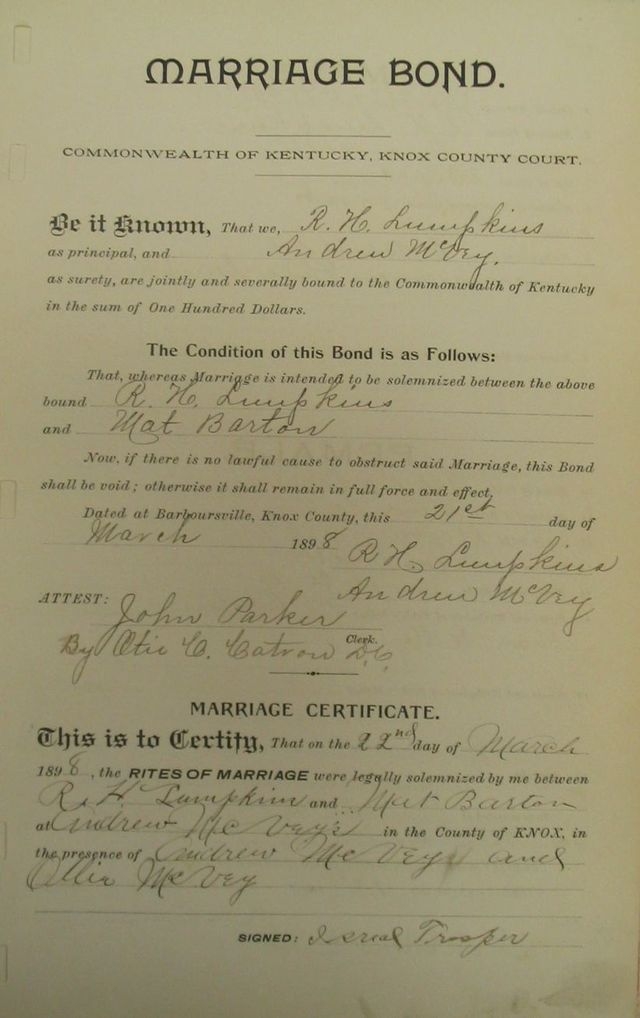 MARRIAGE BOND.
COMMONWEALTH OF KENTUCKY, KNOX COUNTY COURT.
Be it Known, That we, R. H. Lumpkins
as principal, and Andrew McVey.
as surety, are jointly and severally bound to the Commonwealth of Kentucky
in the sum of One Hundred Dollars.
The Condition of this Bond is as Follows:
That, whereas Marriage is intended to be solemnized between the above
bound R. H. Lumpkins
and Mat Barton
Now, if there is no lawful cause to obstruct said Marriage, this Bond
shall be void; otherwise it shall remain in full force and effect.
Dated at Barboursville, Knox County, this 21st day of
March 1898
R H Lumpkins
Andrew McVey
ATTEST: John Parker
Clerk.
By Otis C. Catron D.C.
MARRIAGE CERTIFICATE.
This is to Certify, That on the 22nd day of March
1898, the RITES OF MARRIAGE were legally solemnized by me between
R. H. Lumpkin and Mat Barton
at Andrew McVeys in the County of KNOX, in
the presence of Andrew McVeys and
McVey
SIGNED: